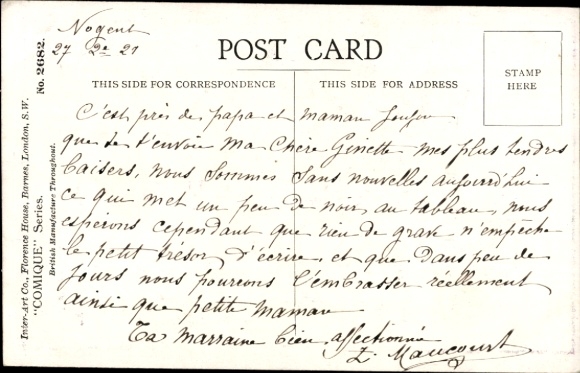 Nogent
27 2e 21
POST CARD
THIS SIDE FOR CORRESPONDENCE
THIS SIDE FOR ADDRESS
STAMP
HERE
No. 2682.
"COMIQUE" Series.
Inter-Art Co., Florence House, Barnes, London, S.W.
British Manufacture Throughout.
C'est près de papa et maman
que je t'envoie ma chère Ginette mes plus tendres
baisers, nous sommes sans nouvelles aujourd'hui
ce qui met un peu de noir au tableau, nous
espérons cependant que rien de grave n'empêche
le petit trésor d'écrire et que dans peu de
jours nous pourrons t'embrasser réellement
ainsi que petite maman
Ta marraine bien affectionnée
Maucourt